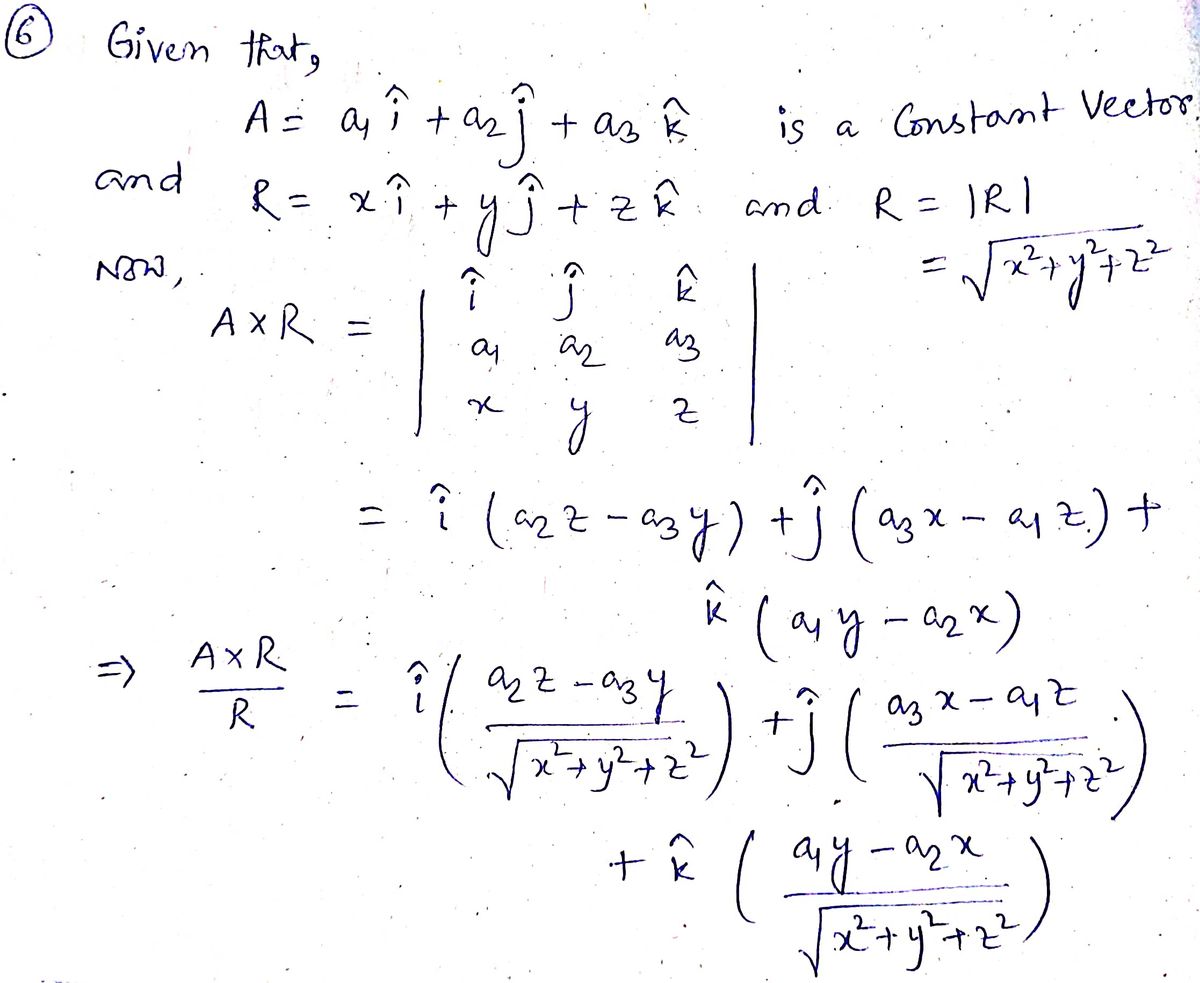 ⑥ Given that,
A = a₁ î + a₂ ĵ + a₃ k̂ is a Constant Vector.
and R = x î + y ĵ + z k̂ and R = |R|
= √(x²+y²+z²)
Now,
A×R = | î ĵ k̂ |
| a₁ a₂ a₃ |
| x y z |
= î (a₂z − a₃y) + ĵ (a₃x − a₁z) +
k̂ (a₁y − a₂x)
⇒ (A×R)/R = î ((a₂z − a₃y)/√(x²+y²+z²)) + ĵ ((a₃x − a₁z)/√(x²+y²+z²))
+ k̂ ((a₁y − a₂x)/√(x²+y²+z²))